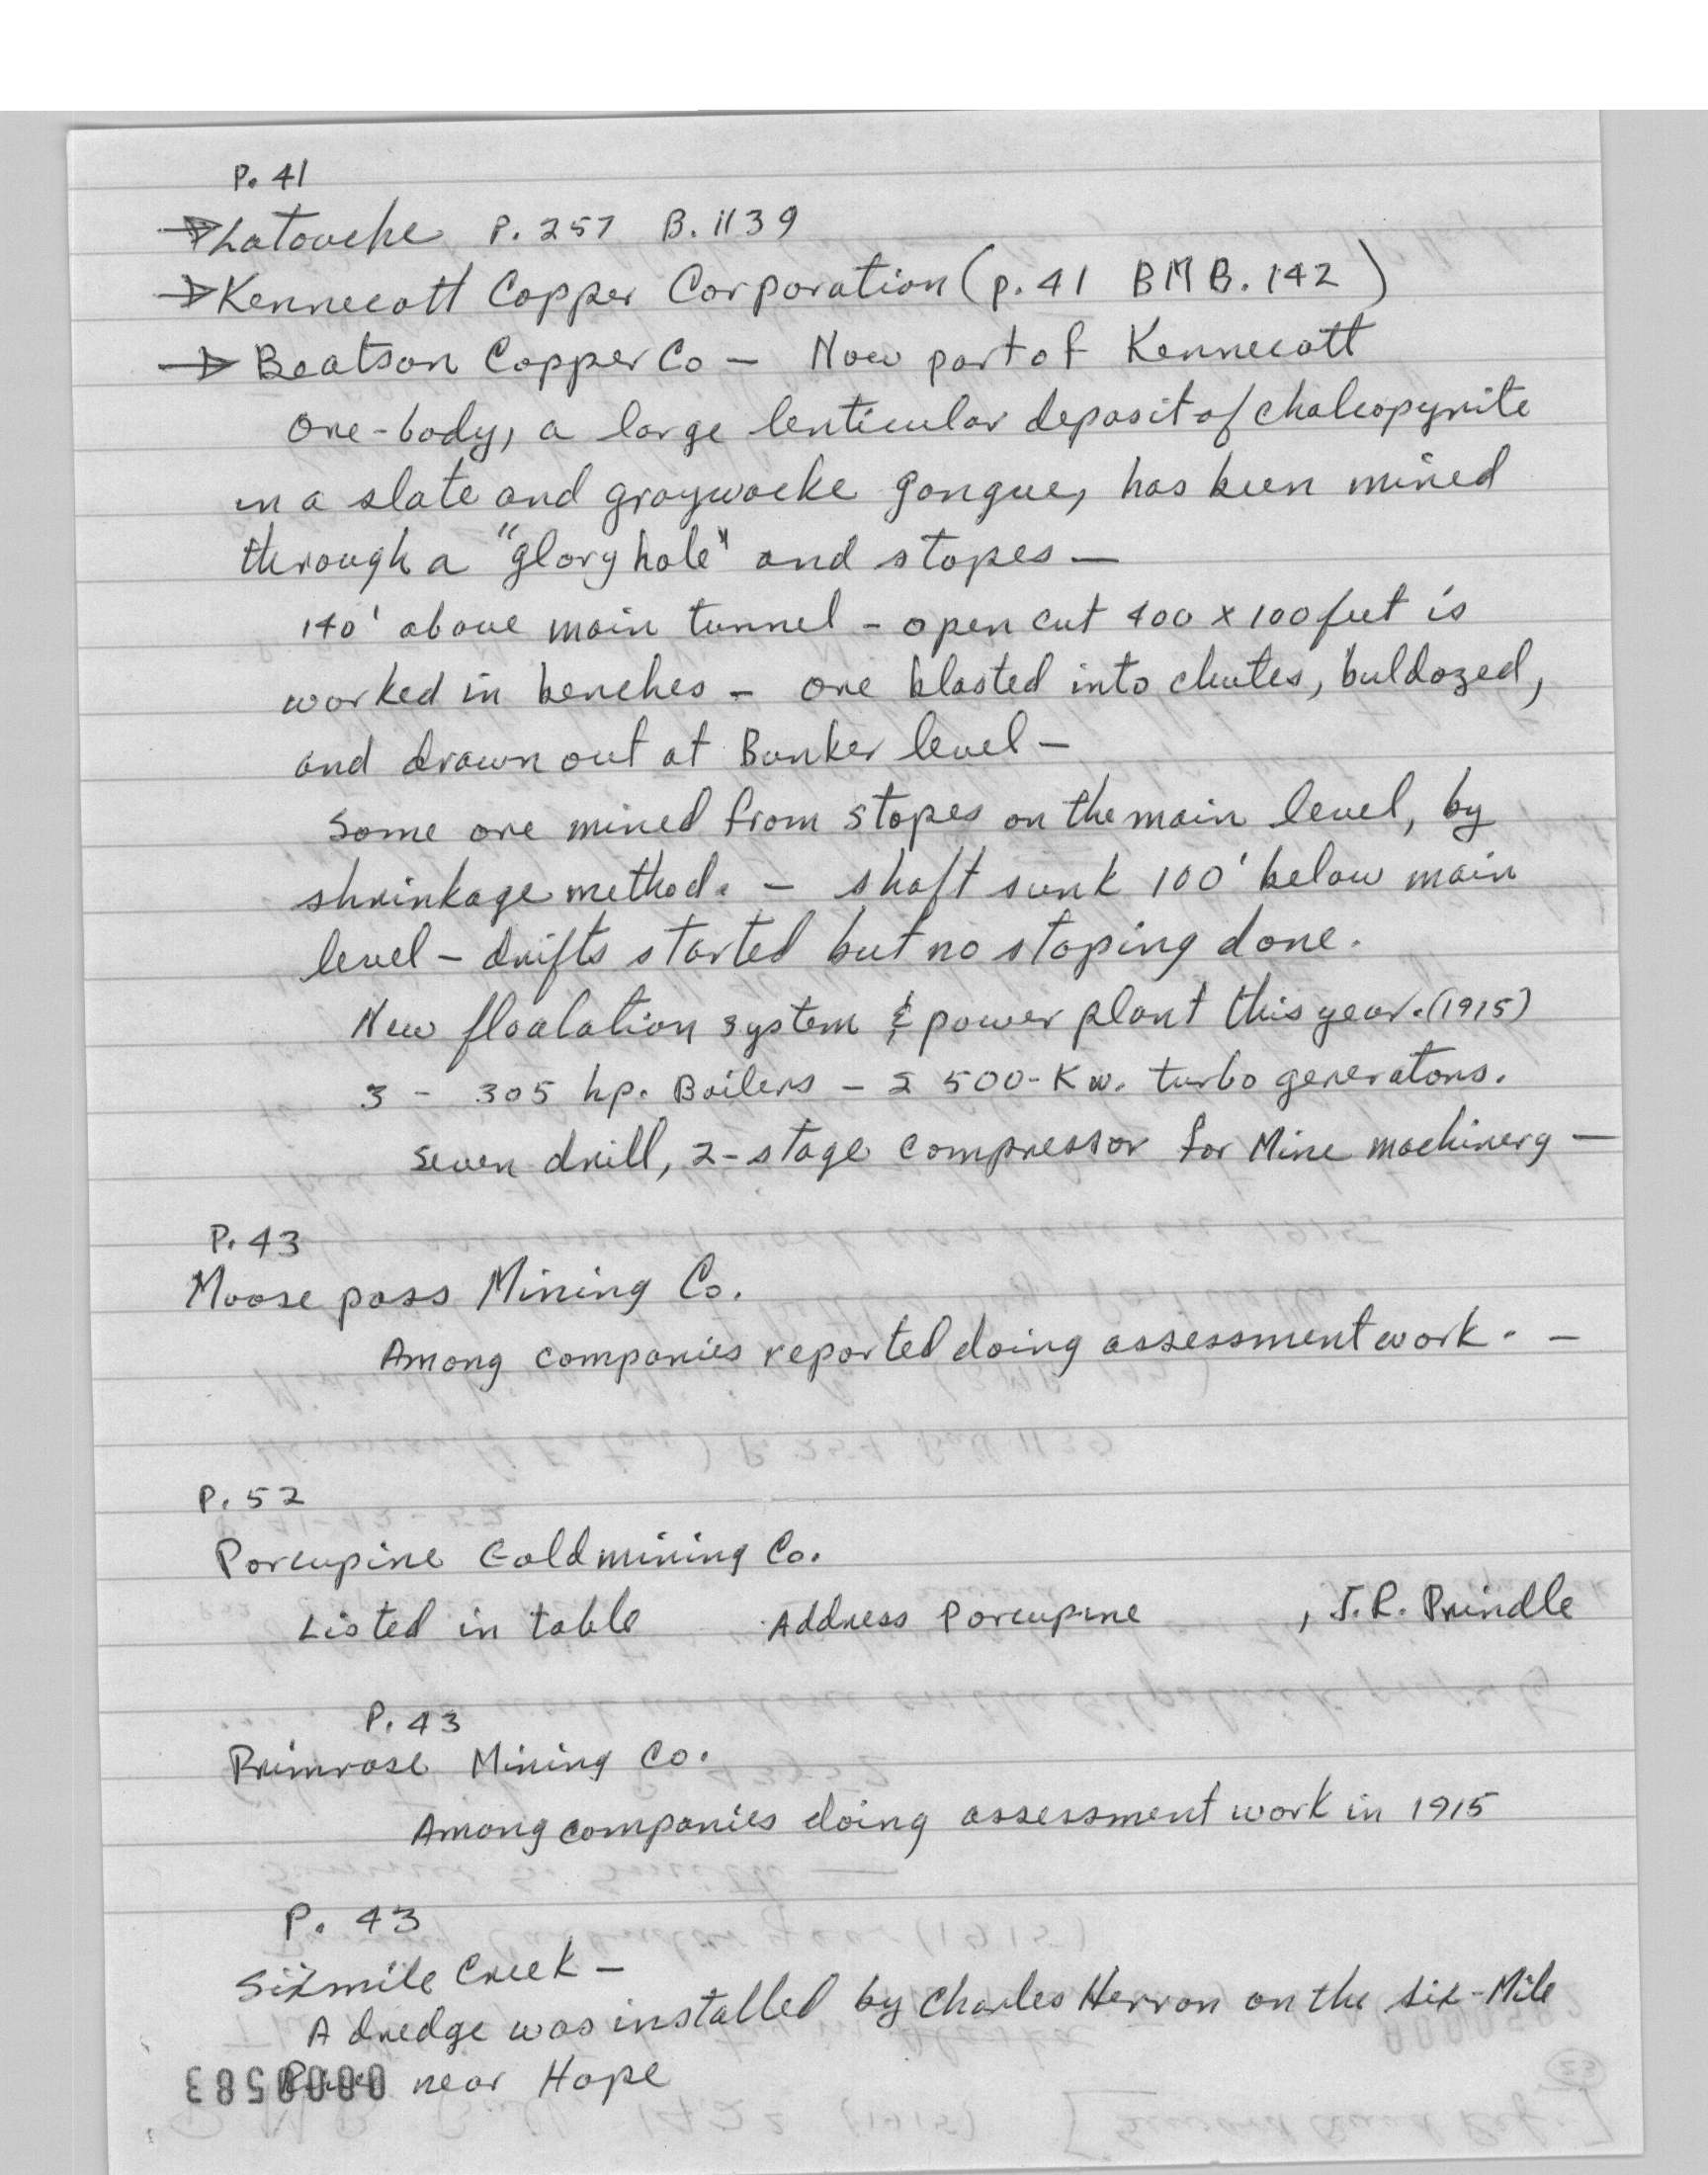 P. 41
Latouche P. 257 B. 1139
Kennecott Copper Corporation (p. 41 BMB. 142)
Beatson Copper Co — Now part of Kennecott
Ore-body, a large lenticular deposit of chalcopyrite
in a slate and graywacke gangue, has been mined
through a "glory hole" and stopes —
140' above main tunnel - open cut 400 x 100 feet is
worked in benches - ore blasted into chutes, buldozed,
and drawn out at Bunker level —
Some ore mined from stopes on the main level, by
shrinkage method. - shaft sunk 100' below main
level — drifts started but no stoping done.
New floatation system & power plant this year. (1915)
3 - 305 hp. Boilers - 2 500-Kw. turbo generators.
Seven drill, 2-stage compressor for Mine machinery —
P. 43
Moose pass Mining Co.
Among companies reported doing assessment work. —
P. 52
Porcupine Gold mining Co.
Listed in table Address Porcupine , J. R. Prindle
P. 43
Primrose Mining Co.
Among companies doing assessment work in 1915
P. 43
Sixmile Creek —
A dredge was installed by Charles Herron on the Six-Mile
near Hope